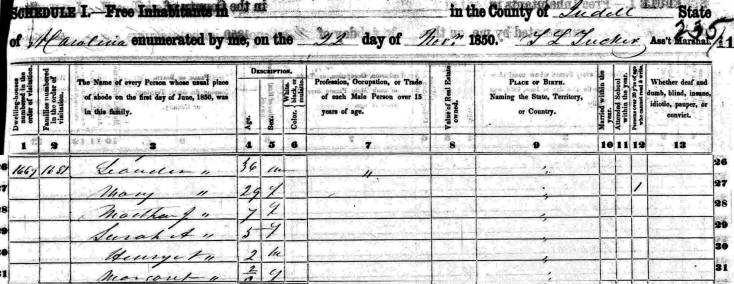 SCHEDULE I.—Free Inhabitants in in the County of Iredell State
of N Carolina enumerated by me, on the 22 day of Novr 1850. Ass't Marshal.
235
DESCRIPTION.
Dwelling-houses numbered in the order of visitation.
Families numbered in the order of visitation.
The Name of every Person whose usual place of abode on the first day of June, 1850, was in this family.
Age.
Sex.
Color, White, black, or mulatto.
Profession, Occupation, or Trade of each Male Person over 15 years of age.
Value of Real Estate owned.
PLACE OF BIRTH.
Naming the State, Territory, or Country.
Married within the year.
Attended School within the year.
Persons over 20 y'rs of age who cannot read & write.
Whether deaf and dumb, blind, insane, idiotic, pauper, or convict.
1 2 3 4 5 6 7 8 9 10 11 12 13
26 Leander " 36 m " " 26
27 Mary " 29 f " 1 27
28 Martha J " 7 f " 28
29 Sarah A " 5 f " 29
30 " 2 m " 30
31 Margaret " f " 31